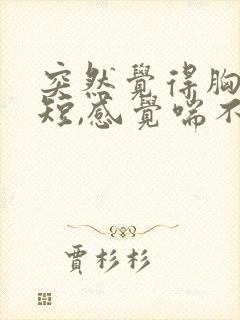 突然覺得胸
短,感覺喘不
賈杉杉